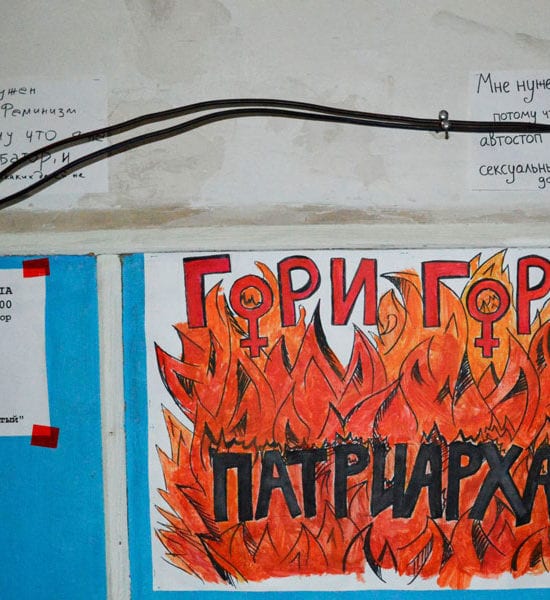 ужен
Феминизм
му что я не
батор, и
Мне нуже
потому чт
автостоп
сексуальны
IA
00
ор
тый"
ГОРИ ГОР
ПАТРИАРХА